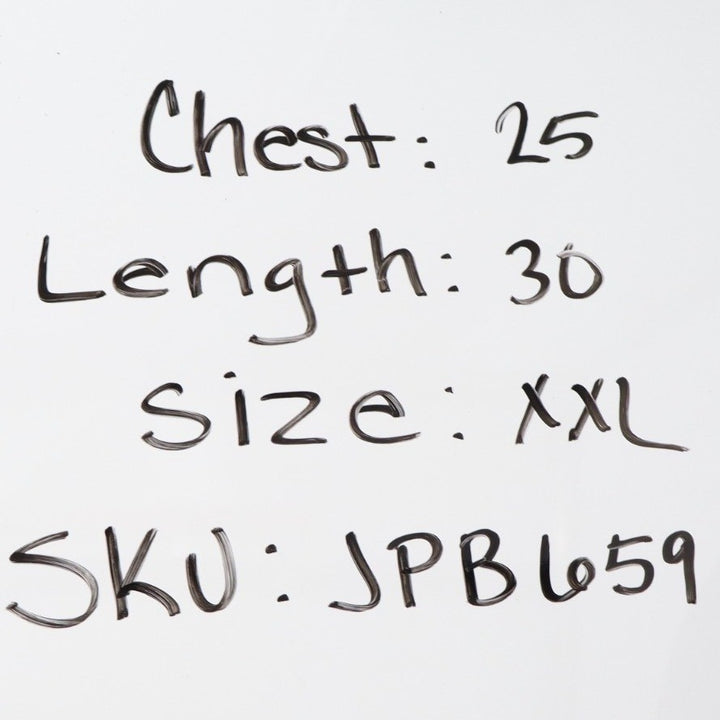 Chest: 25
Length: 30
Size: XXL
SKU: JPB659